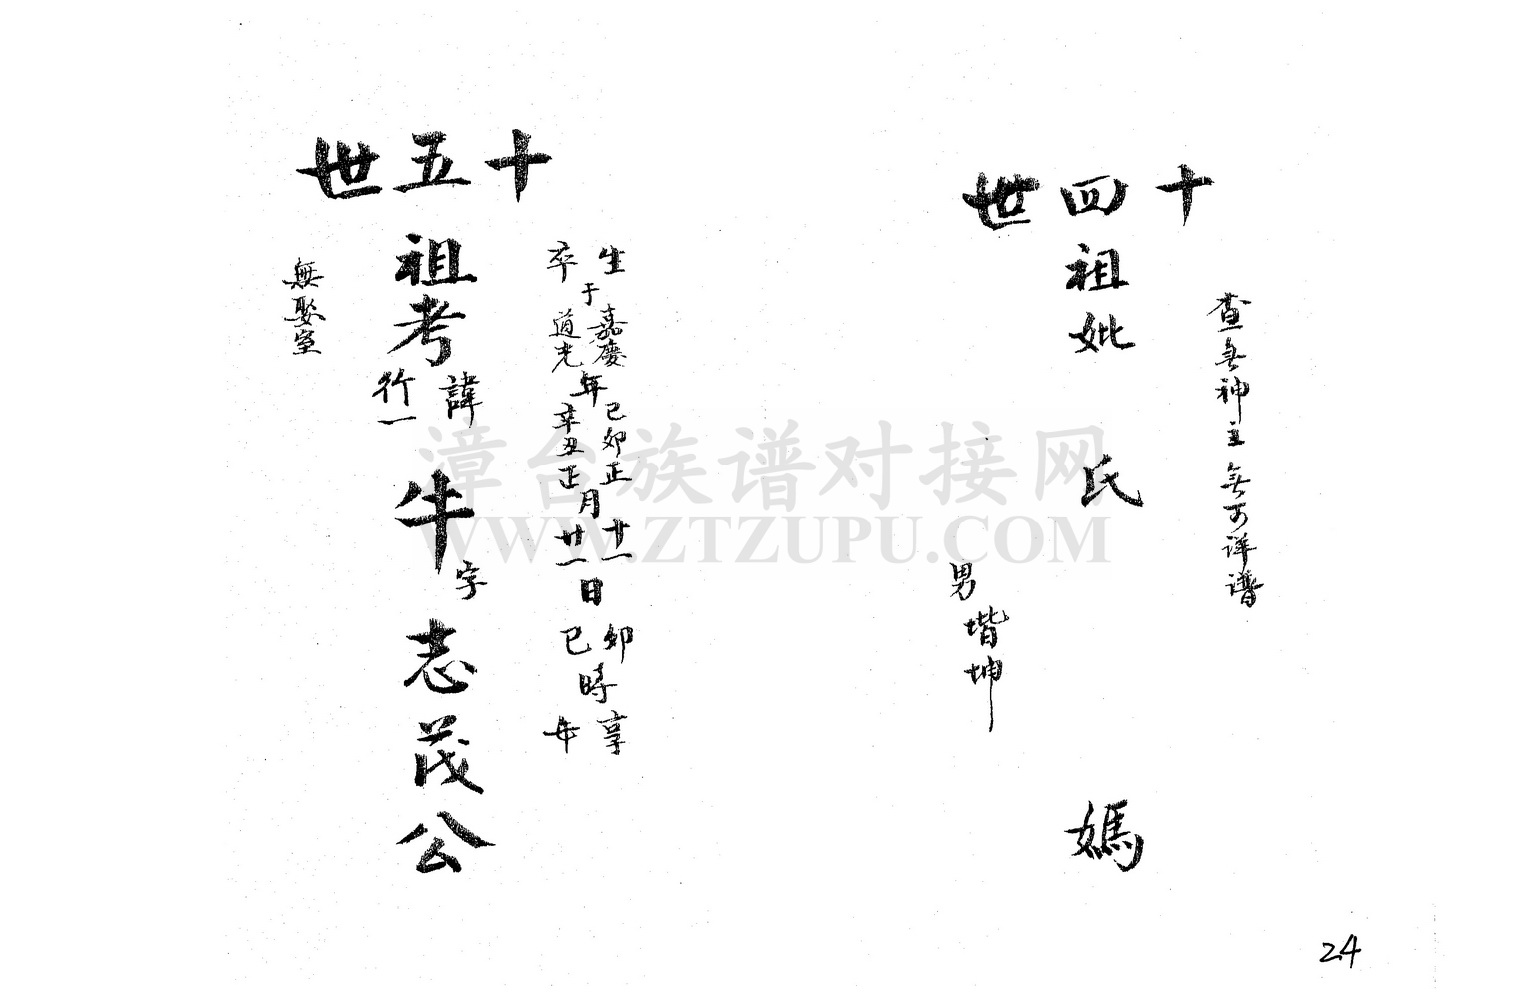 十四世
查無神主無可詳譜
祖妣 氏 媽
男 堦坤
十五世
生于嘉慶年己卯正月廿一日卯時享
卒于道光年辛丑正月廿一日巳時年
祖考諱牛字志茂公
行一
無娶室
漳台族谱对接网
WWW.ZTZUPU.COM
24